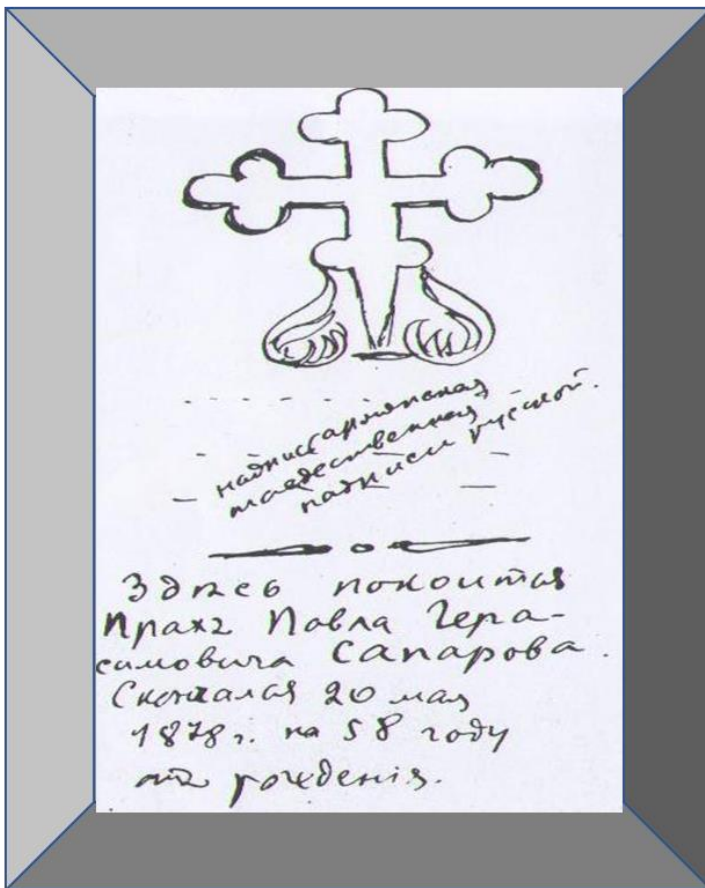 надпись армянская
тождественная
надписи русской.
Здѣсь покоится
прахъ Павла Гера-
симовича Сапарова.
Скончался 20 мая
1878 г. на 58 году
отъ рожденія.